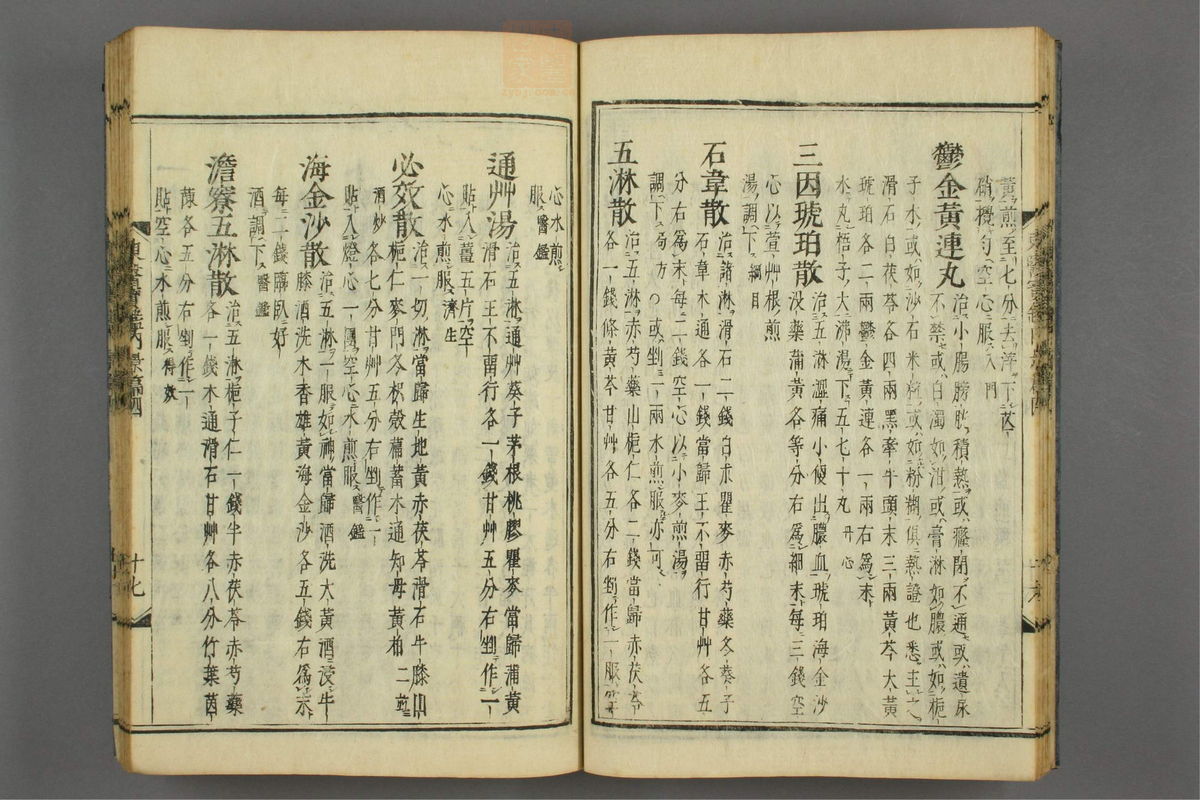 黃煎至七分去滓下芒
硝攪勻空心服入門
鬱金黃連丸治小腸膀胱積熱或癃閉不通或遺尿
不禁或白濁如泔或膏淋如膿或如梔
子水或如沙石米粒或如粉糊俱熱證也悉主之
滑石白茯苓各四兩黑牽牛頭末三兩黃芩大黃
琥珀各二兩鬱金黃連各一兩右爲末
水丸梧子大沸湯下五七十丸丹心
三因琥珀散治五淋澁痛小便出膿血琥珀海金沙
沒藥蒲黃各等分右爲細末每三錢空
心以萱艸根煎
湯調下綱目
石韋散治諸淋滑石二錢白朮瞿麥赤芍藥冬葵子
石韋木通各一錢當歸王不畱行甘艸各五
分右爲末每二錢空心以小麥煎湯
調下局方○或剉一兩水煎服亦可
五淋散治五淋赤芍藥山梔仁各二錢當歸赤茯苓
各一錢條黃芩甘艸各五分右剉作一服空
心水煎
服醫鑑
通艸湯治五淋通艸葵子茅根桃膠瞿麥當歸蒲黃
滑石王不畱行各一錢甘艸五分右剉作一
貼入薑五片空
心水煎服濟生
必效散治一切淋當歸生地黃赤茯苓滑石牛膝山
梔仁麥門冬枳殼萹蓄木通知母黃柏二並
酒炒各七分甘艸五分右剉作一
貼入燈心一團空心水煎服醫鑑
海金沙散治五淋一服如神當歸酒洗大黃酒浸牛
膝酒洗木香雄黃海金沙各五錢右爲末
每二錢臨臥好
酒調下醫鑑
澹寮五淋散治五淋梔子仁一錢半赤茯苓赤芍藥
各一錢木通滑石甘艸各八分竹葉茵
蔯各五分右剉作一
貼空心水煎服得效
東醫寶鑑內景篇四
十七